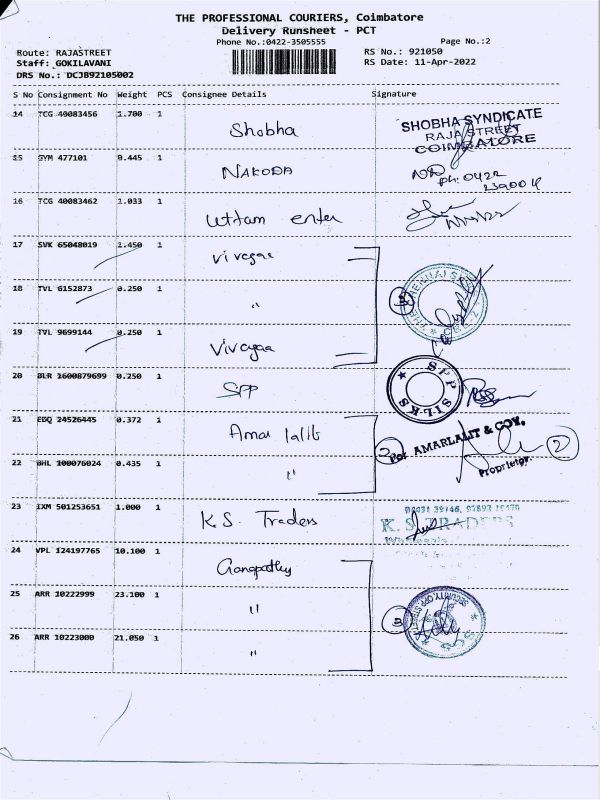 THE PROFESSIONAL COURIERS, Coimbatore
Delivery Runsheet - PCT
Phone No.:0422-3505555
Page No.:2
Route: RAJASTREET
RS No.: 921050
Staff: GOKILAVANI
RS Date: 11-Apr-2022
DRS No.: DCJB92105002
S No Consignment No Weight PCS Consignee Details Signature
14 TCG 40083456 1.700 1 Shobha
SHOBHA SYNDICATE
RAJA STREET
COIMBATORE
15 SYM 477101 0.445 1 NAKODA
Ph: 0422
2390014
16 TCG 40083462 1.033 1 Uttam enter
17 SVK 65048019 1.450 1 Vivegaa
18 TVL 6152873 0.250 1 "
19 TVL 9699144 0.250 1 Vivegaa
20 BLR 1600879699 0.250 1 SPP
SPP SILKS
21 EBQ 24526445 0.372 1 Amar lalit
For AMARLALIT & COY.
2
Proprietor
22 BHL 100076024 0.435 1 "
23 IXM 501253651 1.000 1 K.S. Traders
K. S. TRADERS
24 VPL 124197765 10.100 1 Ganapathy
25 ARR 10222999 23.100 1 "
3
26 ARR 10223000 21.050 1 "